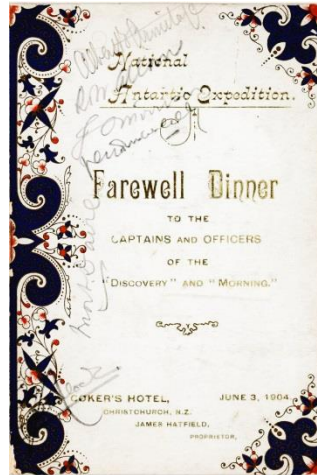 National
Antarctic Expedition.
Farewell Dinner
TO THE
CAPTAINS AND OFFICERS
OF THE
"DISCOVERY" AND "MORNING."
COKER'S HOTEL, JUNE 3, 1904.
CHRISTCHURCH, N.Z.
JAMES HATFIELD,
PROPRIETOR,